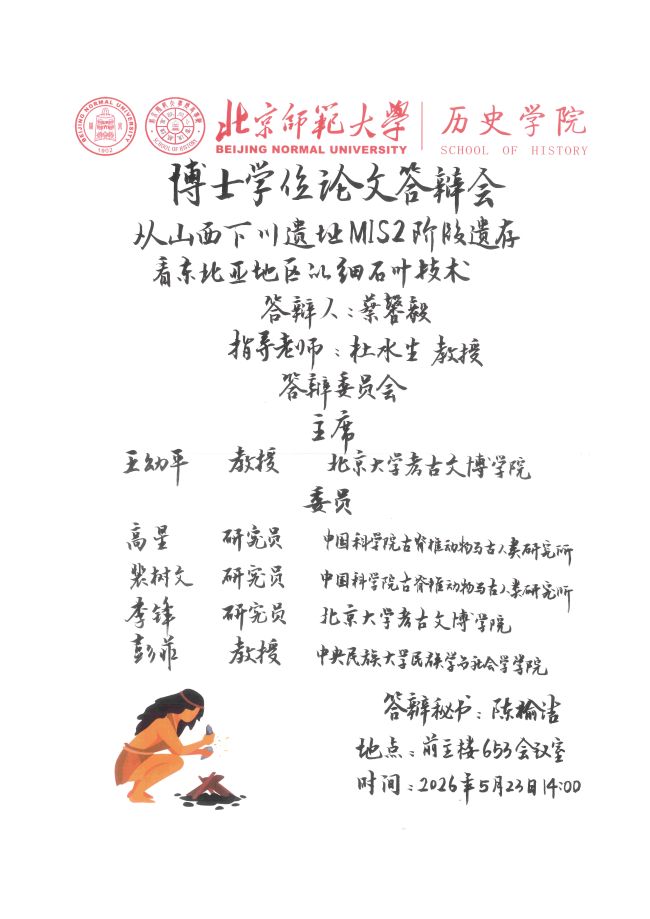 北京师范大学 历史学院
BEIJING NORMAL UNIVERSITY SCHOOL OF HISTORY
BEIJING NORMAL UNIVERSITY
1902
SCHOOL OF HISTORY
博士学位论文答辩会
从山西下川遗址MIS2阶段遗存
看东北亚地区的细石叶技术
答辩人:蔡馨毅
指导老师:杜水生 教授
答辩委员会
主席
王幼平 教授 北京大学考古文博学院
委员
高星 研究员 中国科学院古脊椎动物与古人类研究所
裴树文 研究员 中国科学院古脊椎动物与古人类研究所
李锋 研究员 北京大学考古文博学院
彭菲 教授 中央民族大学民族学与社会学学院
答辩秘书:陈榆洁
地点:前主楼653会议室
时间:2026年5月23日14:00